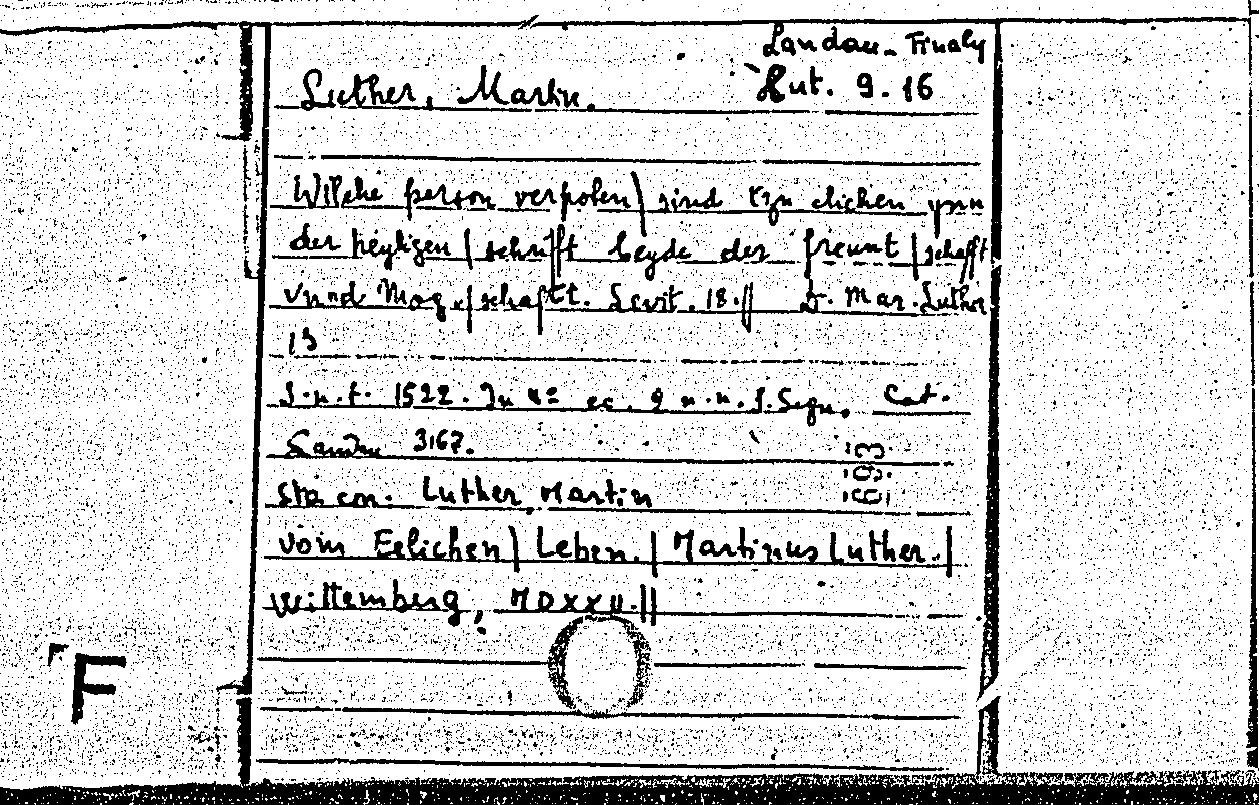 Landau-Finaly
Luther, Martin. Lut. 9.16
Wilche person verpoten) sind tzu elichen ynn
der heyligen | schrifft beyde der freunt | schafft
vnnd Mog. | schafftt. Levit. 18. || D. Mar. Luther
S.n.t. 1522. In 4º ec. 2 n.n. s. Segn. Cat.
Landau 3167.
693
Sta con. Luther, Martin
vom Eelichen) Leben. | Martinus Luther. |
Wittemberg, MDXXII. ||
F